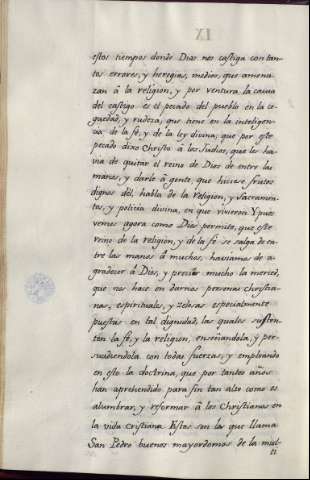 IX
estos tiempos donde Dios nos castiga con tan-
tos errores, y heregias, medios, que amena-
zan â la religion, y por ventura la causa
del castigo es el pecado del pueblo en la ce-
guedad, y rudeza, que tiene en la inteligen-
cia de la fé, y de la ley divina, que por este
pecado dixo Christo â los Judios, que les ha-
via de quitar el reino de Dios de entre las
manos, y darle â gente, que hiciese frutos
dignos del, habla de la religion, y Sacramen-
tos, y policia divina, en que vivieron Y pues
vemos agora como Dios permite, que este
reino de la religion, y de la fé se salga de en-
tre las manos â muchos, haviamos de a-
gradecer â Dios, y preciar mucho la merced,
que nos hace en darnos personas christia-
nas, espirituales, y zelosas especialmente
puestas en tal dignidad, las quales susten-
ten la fé, y la religion, enseñandola, y per-
suadiendola con todas fuerzas, y empleando
en esto la doctrina, que por tantos años
han aprehendido para fin tan alto como es
alumbrar, y reformar â los Christianos en
la vida cristiana Estos son los que llama
San Pedro buenos mayordomos de la mul-
ti